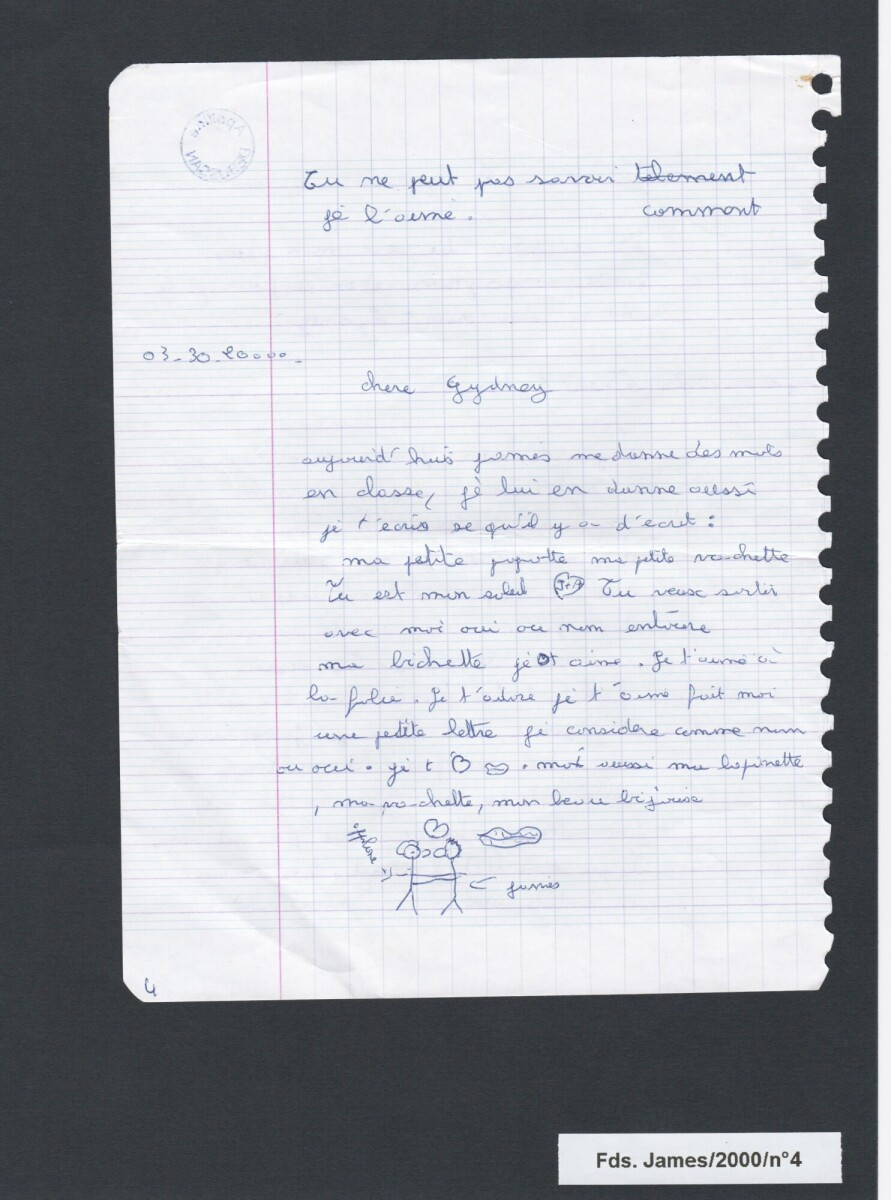 Tu ne peut pas savoir telement
jé l'aime. comment
03-30-20000-
chere Gydney
aujourd'huis james me donne des mots
en classe, jé lui en donne aussi
je t'ecris se qu'il y a d'ecrit :
ma petite ma petite vachette
Tu est mon soleil J+A Tu veuse sortir
avec moi oui ou nom entoure
ma bichette jé t aime. Je t'aime à
la folie. Je t'adore jé t'aime fait moi
une petite lettre jé considere comme nom
ou oui. jé t . moi aussi ma lapinette
, ma vachette, mon beau
james
4
Fds. James/2000/n°4